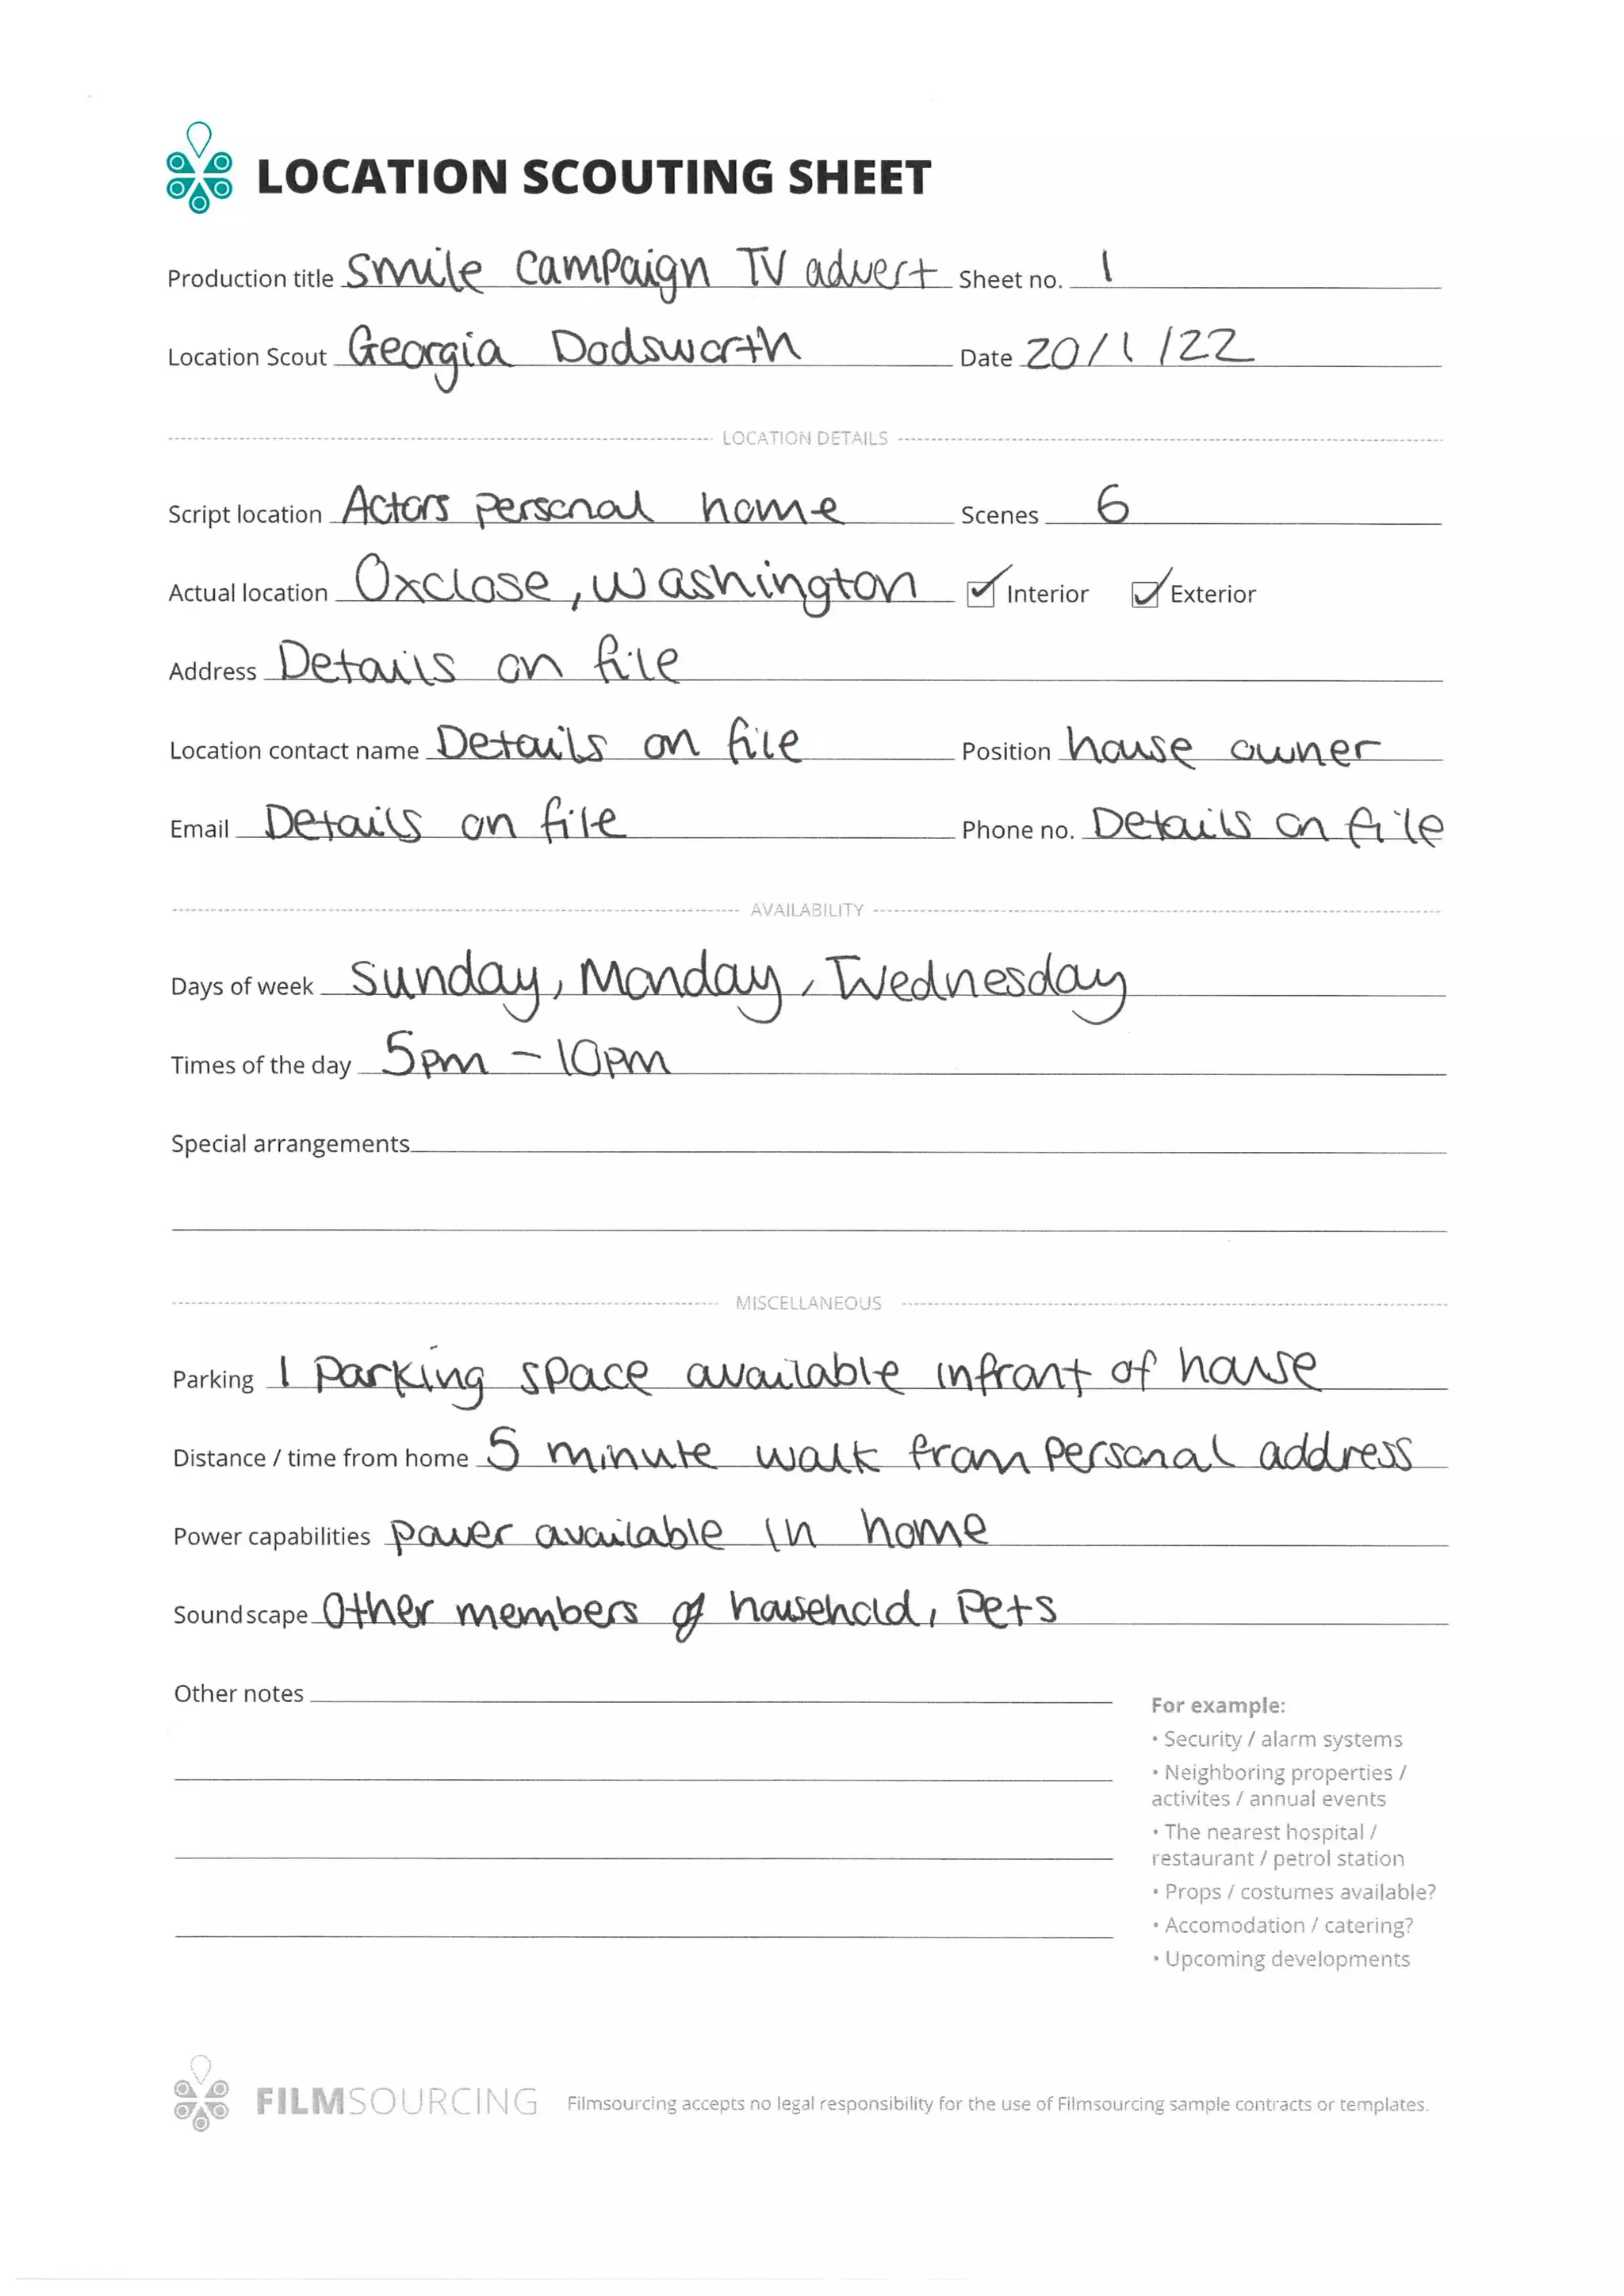 LOCATION SCOUTING SHEET
Production title Smile Campaign TV advert Sheet no. 1
Location Scout Georgia Dodsworth Date 20/1/22
LOCATION DETAILS
Script location Actors personal home Scenes 6
Actual location Oxclose, Washington Interior Exterior
Address Details on file
Location contact name Details on file Position house owner
Email Details on file Phone no. Details on file
AVAILABILITY
Days of week Sunday, Monday, Wednesday
Times of the day 5pm - 10pm
Special arrangements
MISCELLANEOUS
Parking 1 Parking space available infront of house
Distance / time from home 5 minute walk from personal address
Power capabilities power available in home
Soundscape Other members of household, Pets
Other notes
For example:
• Security / alarm systems
• Neighboring properties /
activites / annual events
• The nearest hospital /
restaurant / petrol station
• Props / costumes available?
• Accomodation / catering?
• Upcoming developments
FILMSOURCING Filmsourcing accepts no legal responsibility for the use of Filmsourcing sample contracts or templates.